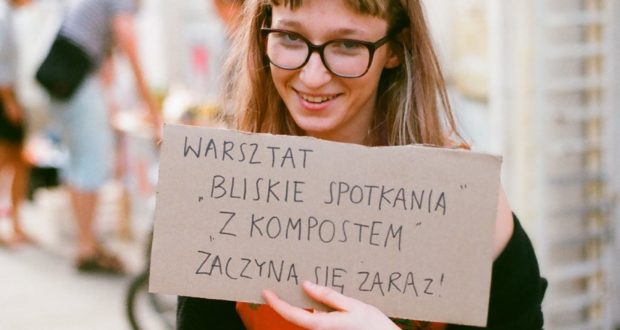 WARSZTAT
„BLISKIE SPOTKANIA"
„Z KOMPOSTEM"
ZACZYNA SIĘ ZARAZ!